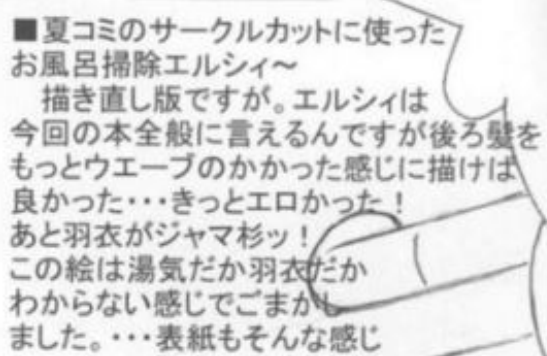 ■夏コミのサークルカットに使った
お風呂掃除エルシィ～
　描き直し版ですが。エルシィは
今回の本全般に言えるんですが後ろ髪を
もっとウエーブのかかった感じに描けば
良かった・・・きっとエロかった！
あと羽衣がジャマ杉ッ！
この絵は湯気だか羽衣だか
わからない感じでごまかし
ました。・・・表紙もそんな感じ